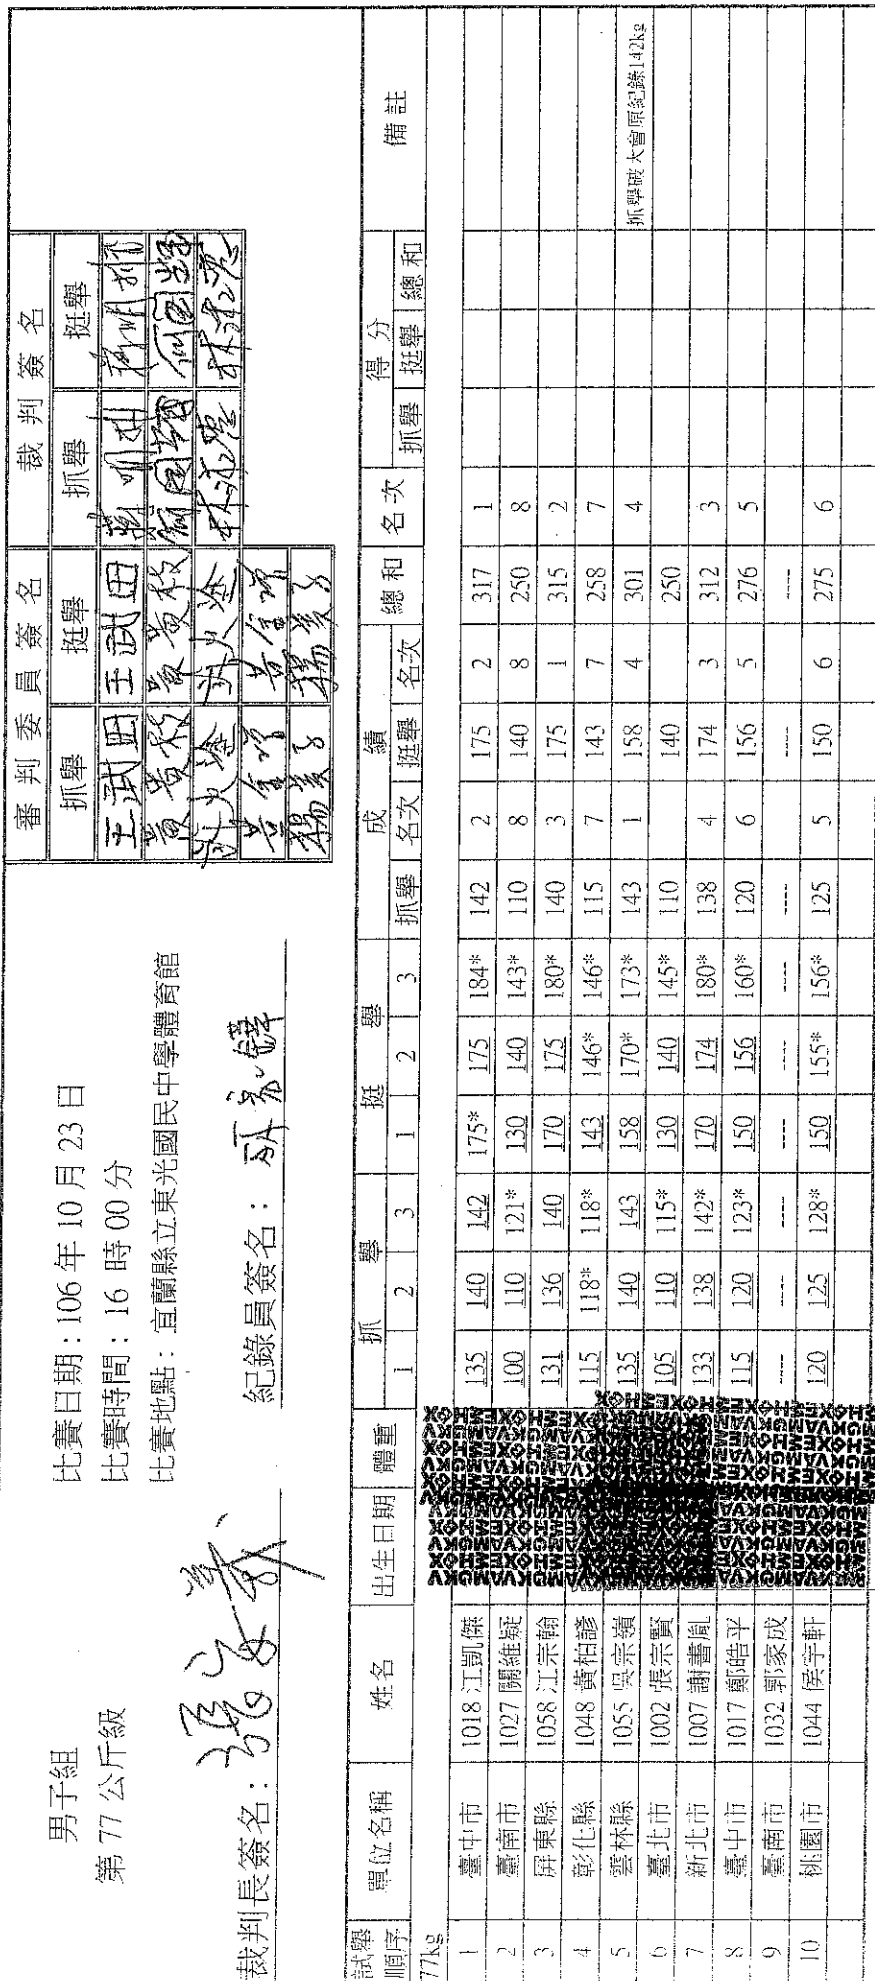 男子組
第 77 公斤級
比賽日期：106 年 10 月 23 日
比賽時間：16 時 00 分
比賽地點：宜蘭縣立東光國民中學體育館
裁判長簽名：
紀錄員簽名：
審 判 委 員 簽 名 裁 判 簽 名
抓舉 挺舉 抓舉 挺舉
王武田 王武田
試舉順序 單位名稱 姓名 出生日期 體重 抓 舉 挺 舉 成 績 總和 名次 得 分 備註
1 2 3 1 2 3 抓舉 名次 挺舉 名次 抓舉 挺舉 總和
77kg
1 臺中市 1018 江凱傑 135 140 142 175* 175 184* 142 2 175 2 317 1
2 臺南市 1027 關維疑 100 110 121* 130 140 143* 110 8 140 8 250 8
3 屏東縣 1058 江宗翰 131 136 140 170 175 180* 140 3 175 1 315 2
4 彰化縣 1048 黃柏諺 115 118* 118* 143 146* 146* 115 7 143 7 258 7
5 雲林縣 1055 吳宗嶺 135 140 143 158 170* 173* 143 1 158 4 301 4 抓舉破大會原紀錄142kg
6 臺北市 1002 張宗賢 105 110 115* 130 140 145* 110 140 250
7 新北市 1007 謝書胤 133 138 142* 170 174 180* 138 4 174 3 312 3
8 臺中市 1017 鄭皓平 115 120 123* 150 156 160* 120 6 156 5 276 5
9 臺南市 1032 郭家成 ---- ---- ---- ---- ---- ---- ---- ---- ----
10 桃園市 1044 侯宇軒 120 125 128* 150 155* 156* 125 5 150 6 275 6